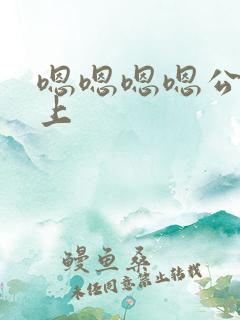 嗯嗯嗯嗯公
上
鳗鱼桑
未经同意禁止转载